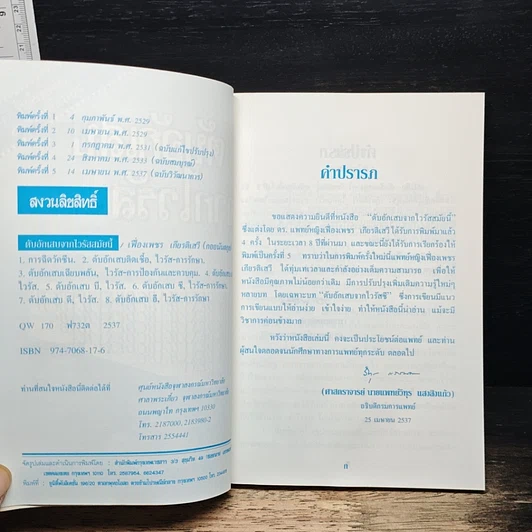 พิมพ์ครั้งที่ 1 4 กุมภาพันธ์ พ.ศ. 2529
พิมพ์ครั้งที่ 2 10 เมษายน พ.ศ. 2529
พิมพ์ครั้งที่ 3 1 กรกฎาคม พ.ศ. 2531 (ฉบับแก้ไขปรับปรุง)
พิมพ์ครั้งที่ 4 24 สิงหาคม พ.ศ. 2533 (ฉบับสมบูรณ์)
พิมพ์ครั้งที่ 5 14 เมษายน พ.ศ. 2537 (ฉบับวิวัฒนาการ)
สงวนลิขสิทธิ์
ตับอักเสบจากไวรัสสมัยนี้ / เฟื่องเพชร เกียรติเสวี
1. การฉีดวัคซีน. 2. ตับอักเสบติดเชื้อ, ไวรัส-การรักษา.
3. ตับอักเสบเฉียบพลัน, ไวรัส-การป้องกันและควบคุม. 4. ตับอักเสบ
ไวรัส. 5. ตับอักเสบ บี, ไวรัส. 6. ตับอักเสบ ซี, ไวรัส-การรักษา.
7. ตับอักเสบ ดี, ไวรัส. 8. ตับอักเสบ อี, ไวรัส-การรักษา.
QW 170 ฟ732ต 2537
ISBN 974-7068-17-6
ท่านที่สนใจหนังสือนี้ติดต่อได้ที่ ศูนย์หนังสือจุฬาลงกรณ์มหาวิทยาลัย
ศาลาพระเกี้ยว จุฬาลงกรณ์มหาวิทยาลัย
ถนนพญาไท กรุงเทพฯ 10330
โทร. 2187000, 2183980-2
โทรสาร 2554441
จัดรูปเล่มและดำเนินการพิมพ์โดย : สำนักพิมพ์กรุงเทพเวชสาร 3/3 สุขุมวิท 49
โทร. 2587954, 6624347
พิมพ์ที่ :
คำปรารภ
ขอแสดงความยินดีที่หนังสือ "ตับอักเสบจากไวรัสสมัยนี้"
ซึ่งแต่งโดย ดร. แพทย์หญิงเฟื่องเพชร เกียรติเสวี ได้รับการพิมพ์มาแล้ว
4 ครั้ง ในระยะเวลา 8 ปีที่ผ่านมา และขณะนี้ยังได้รับการเรียกร้องให้
พิมพ์เป็นครั้งที่ 5 ทราบว่าในการพิมพ์ครั้งใหม่นี้แพทย์หญิงเฟื่องเพชร
เกียรติเสวี ได้ทุ่มเทเวลาและกำลังอย่างเต็มความสามารถ เพื่อให้
หนังสือมีคุณภาพไม่น้อยกว่าเดิม มีการปรับปรุงเพิ่มเติมความรู้ใหม่ๆ
หลายบท โดยเฉพาะบท "ตับอักเสบจากไวรัสซี" ซึ่งการเขียนมีแนว
การเขียนแบบให้อ่านง่าย เข้าใจง่าย ทำให้หนังสือนี้น่าอ่าน แม้จะมี
วิชาการค่อนข้างมาก
หวังว่าหนังสือเล่มนี้ คงจะเป็นประโยชน์ต่อแพทย์ และท่าน
ผู้สนใจตลอดจนนักศึกษาทางการแพทย์ทุกระดับ ตลอดไป
(ศาสตราจารย์ นายแพทย์วิทุร แสงสิงแก้ว)
อธิบดีกรมการแพทย์
25 เมษายน 2537
ก